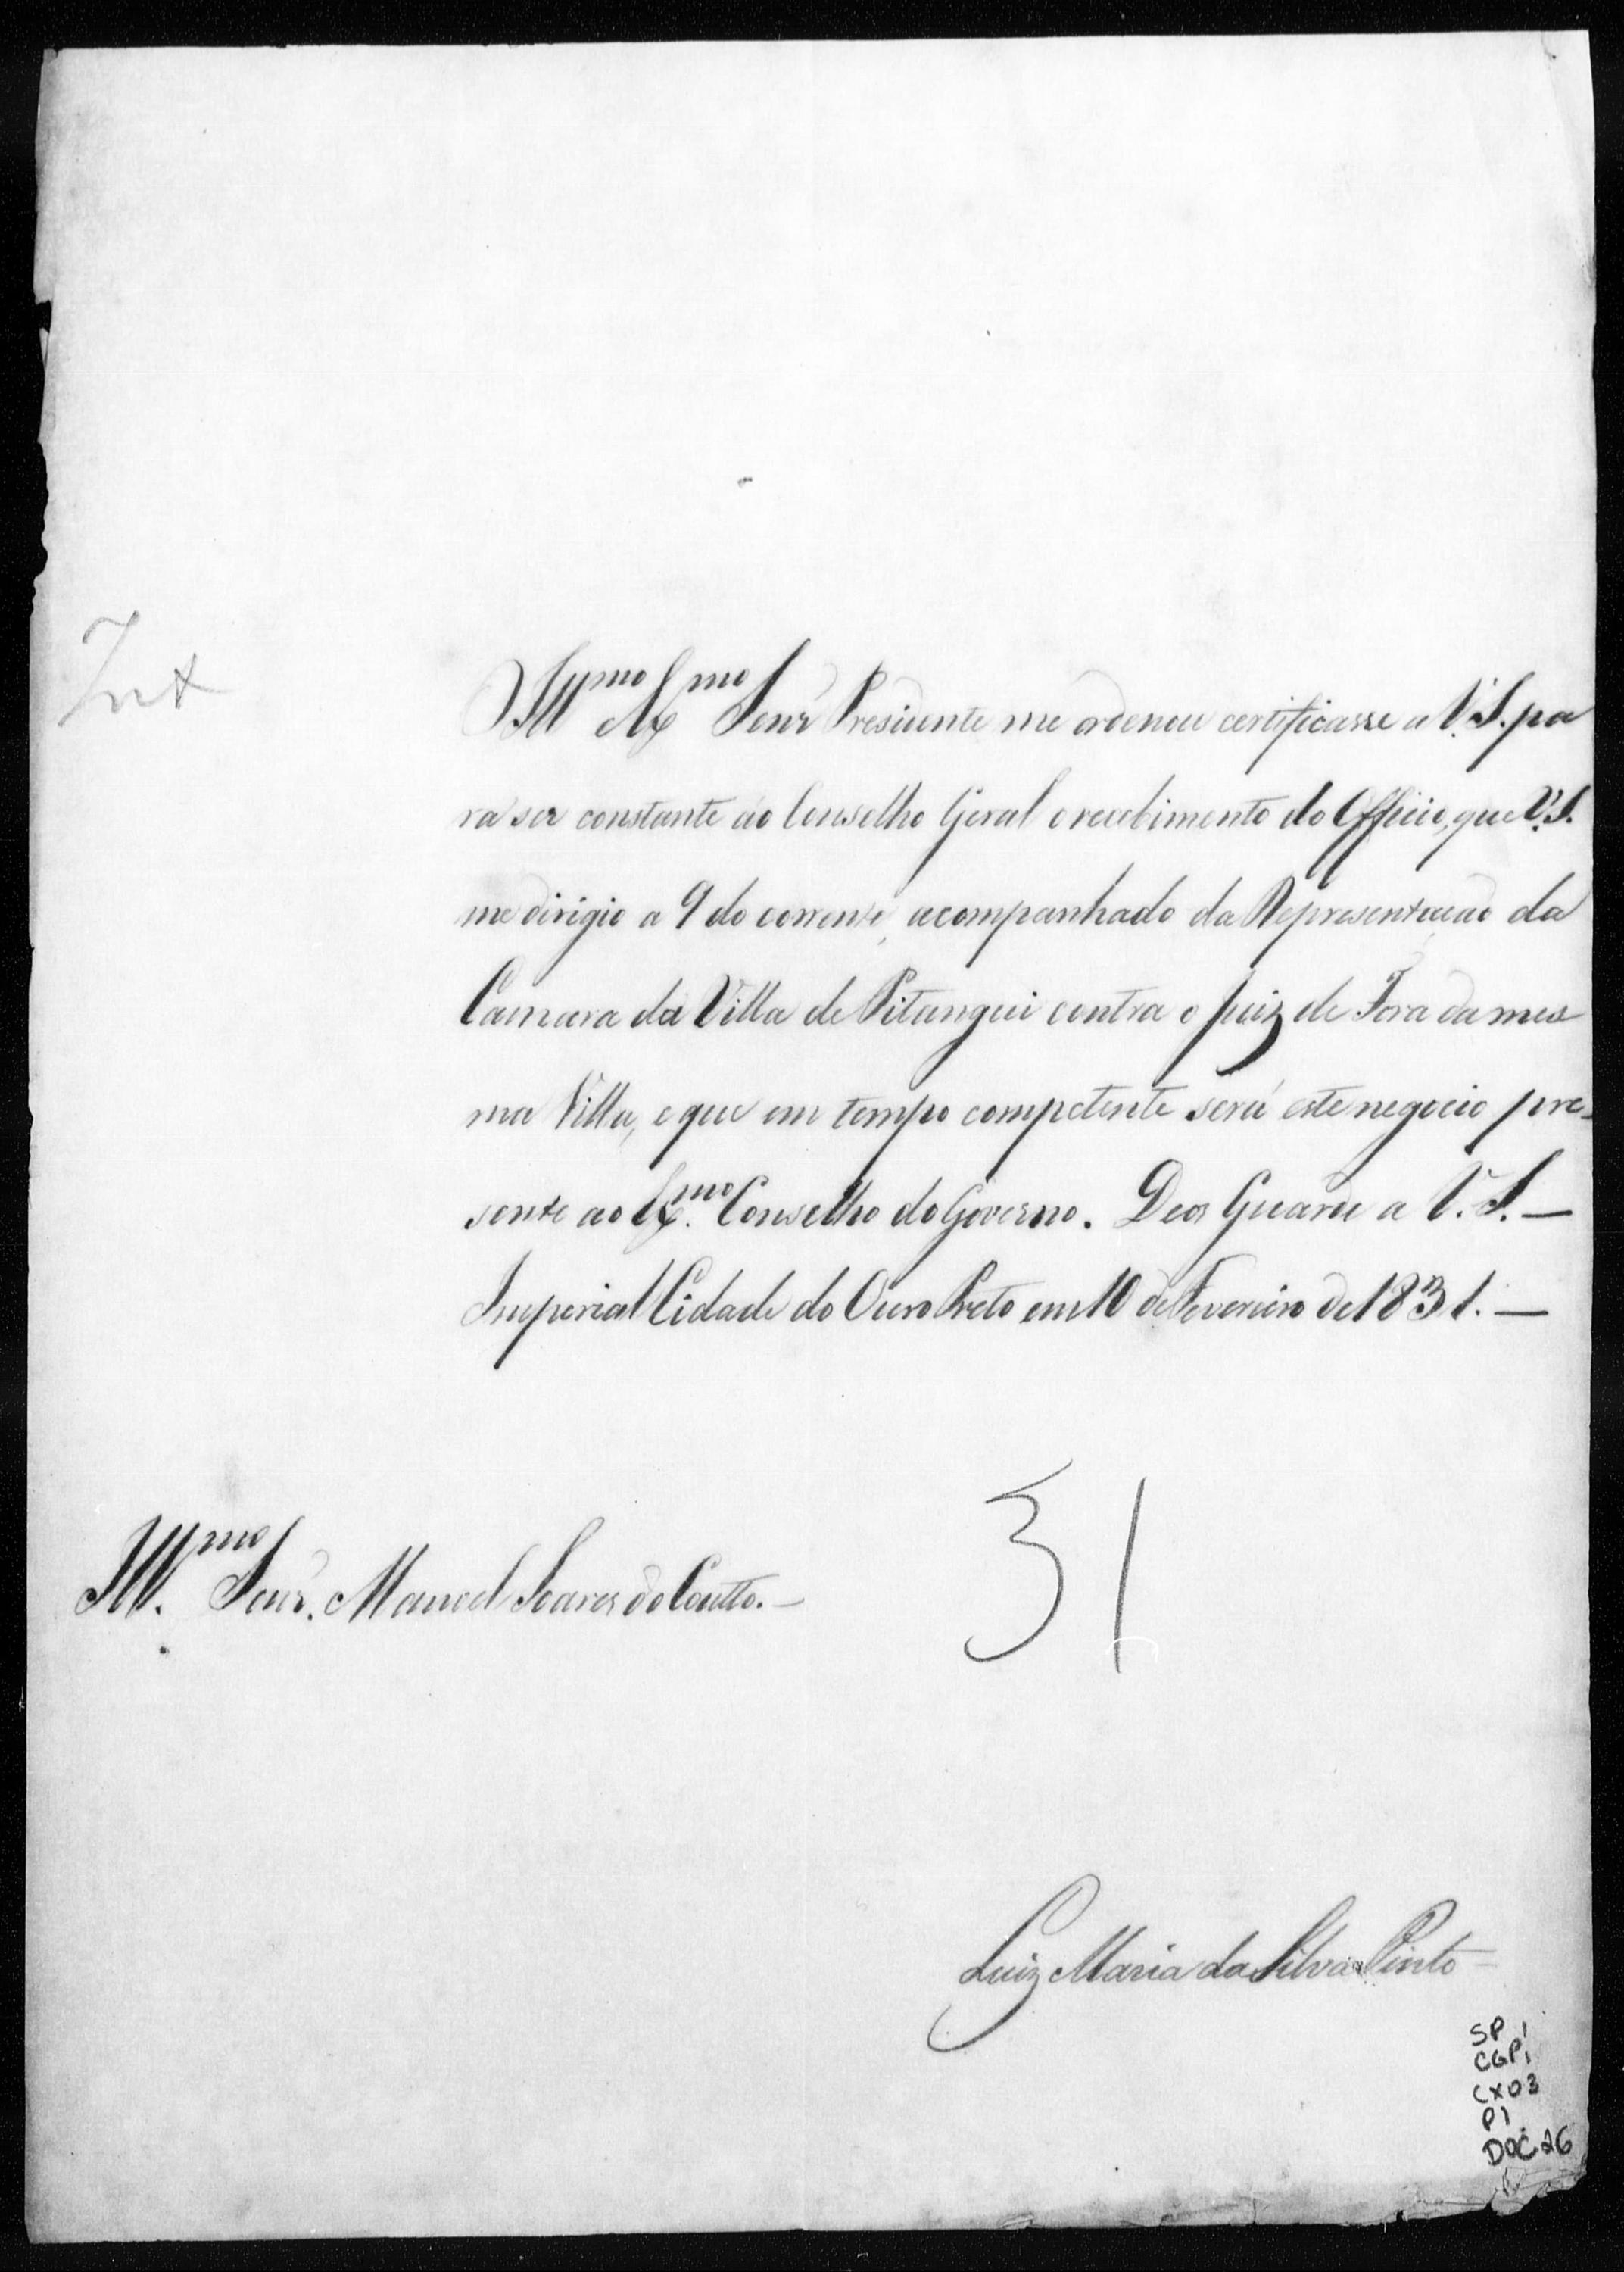 Int
Illmo Exmo Senr Presidente me ordenou certificasse a V. S. pa
ra ser constante ao Conselho Geral o recebimento do Officio, que V. S.
me dirigio a 9 do corrente, acompanhado da Representação da
Camara da Villa de Pitangui contra o Juiz de Fora da mes
ma Villa, e que em tempo competente será este negocio pre-
sente ao Exmo. Conselho do Governo. Deos Guarde a V. S. —
Imperial Cidade do Ouro Preto em 10 de Fevereiro de 1831. —
31
Illmo. Senr. Manoel Soares do Coutto. —
Luiz Maria da Silva Pinto
SP
CGP1
CX03
P1
DOC 26